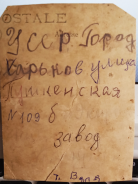 ©STALE
УССР Город
Харьков улица
Пушкенская
№109 б
завод